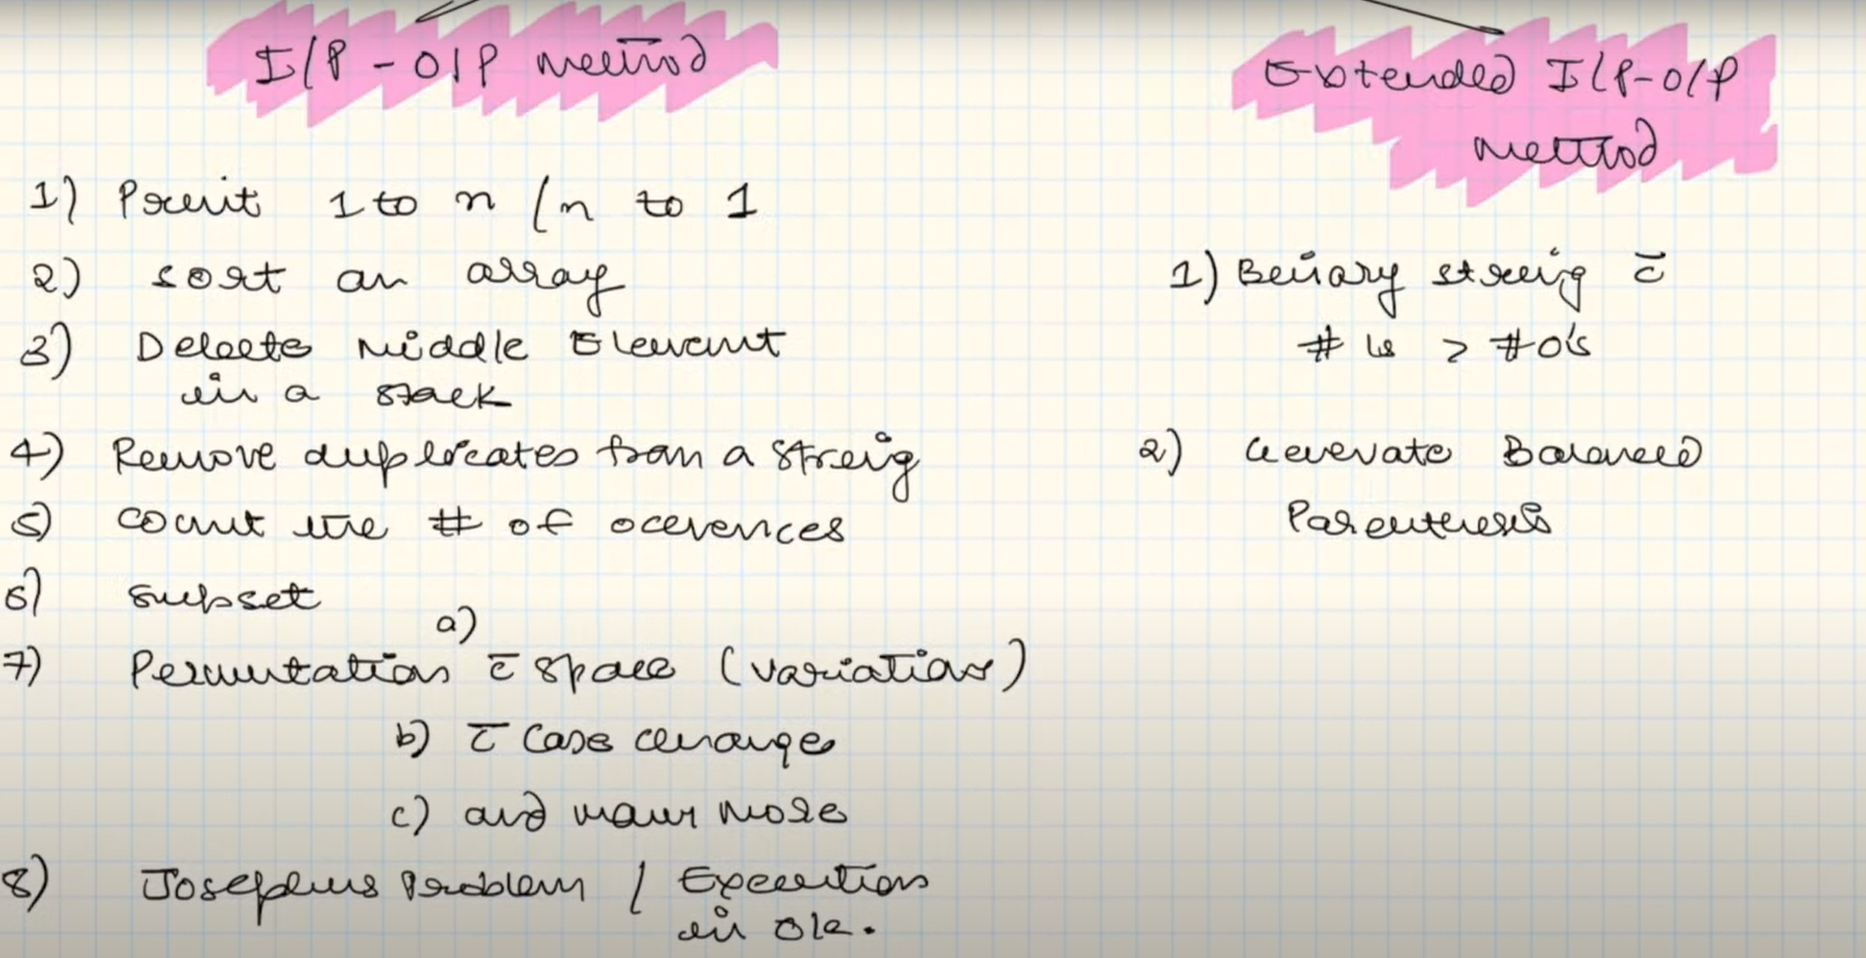 I/P - O/P method
1) Print 1 to n / n to 1
2) sort an array
3) Delete Middle Element
in a stack
4) Remove duplicates from a string
5) count the # of ocerences
6) subset
7) Permutation a) c̄ space (variation)
b) c̄ case change
c) and many more
8) Josephus Problem / Execution
in
Extended I/P-O/P
Method
1) Binary string c̄
# 1s > #0's
2) Generate Balanced
Parenthesis